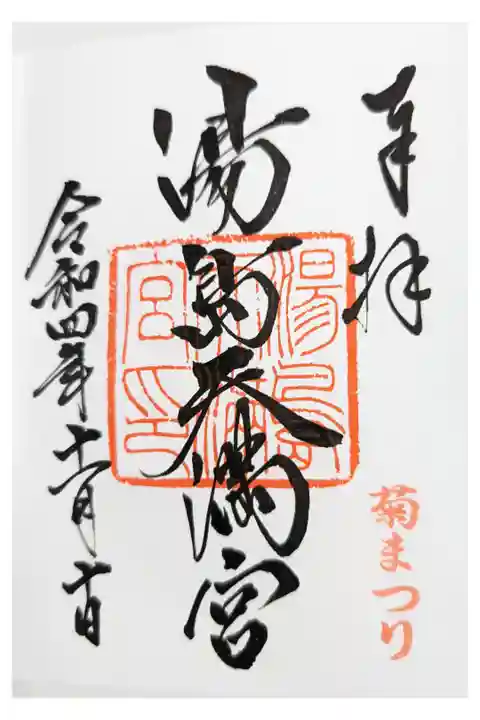 奉拝
菊まつり
湯島天満宮
湯島天満宮印
令和四年十一月十一日